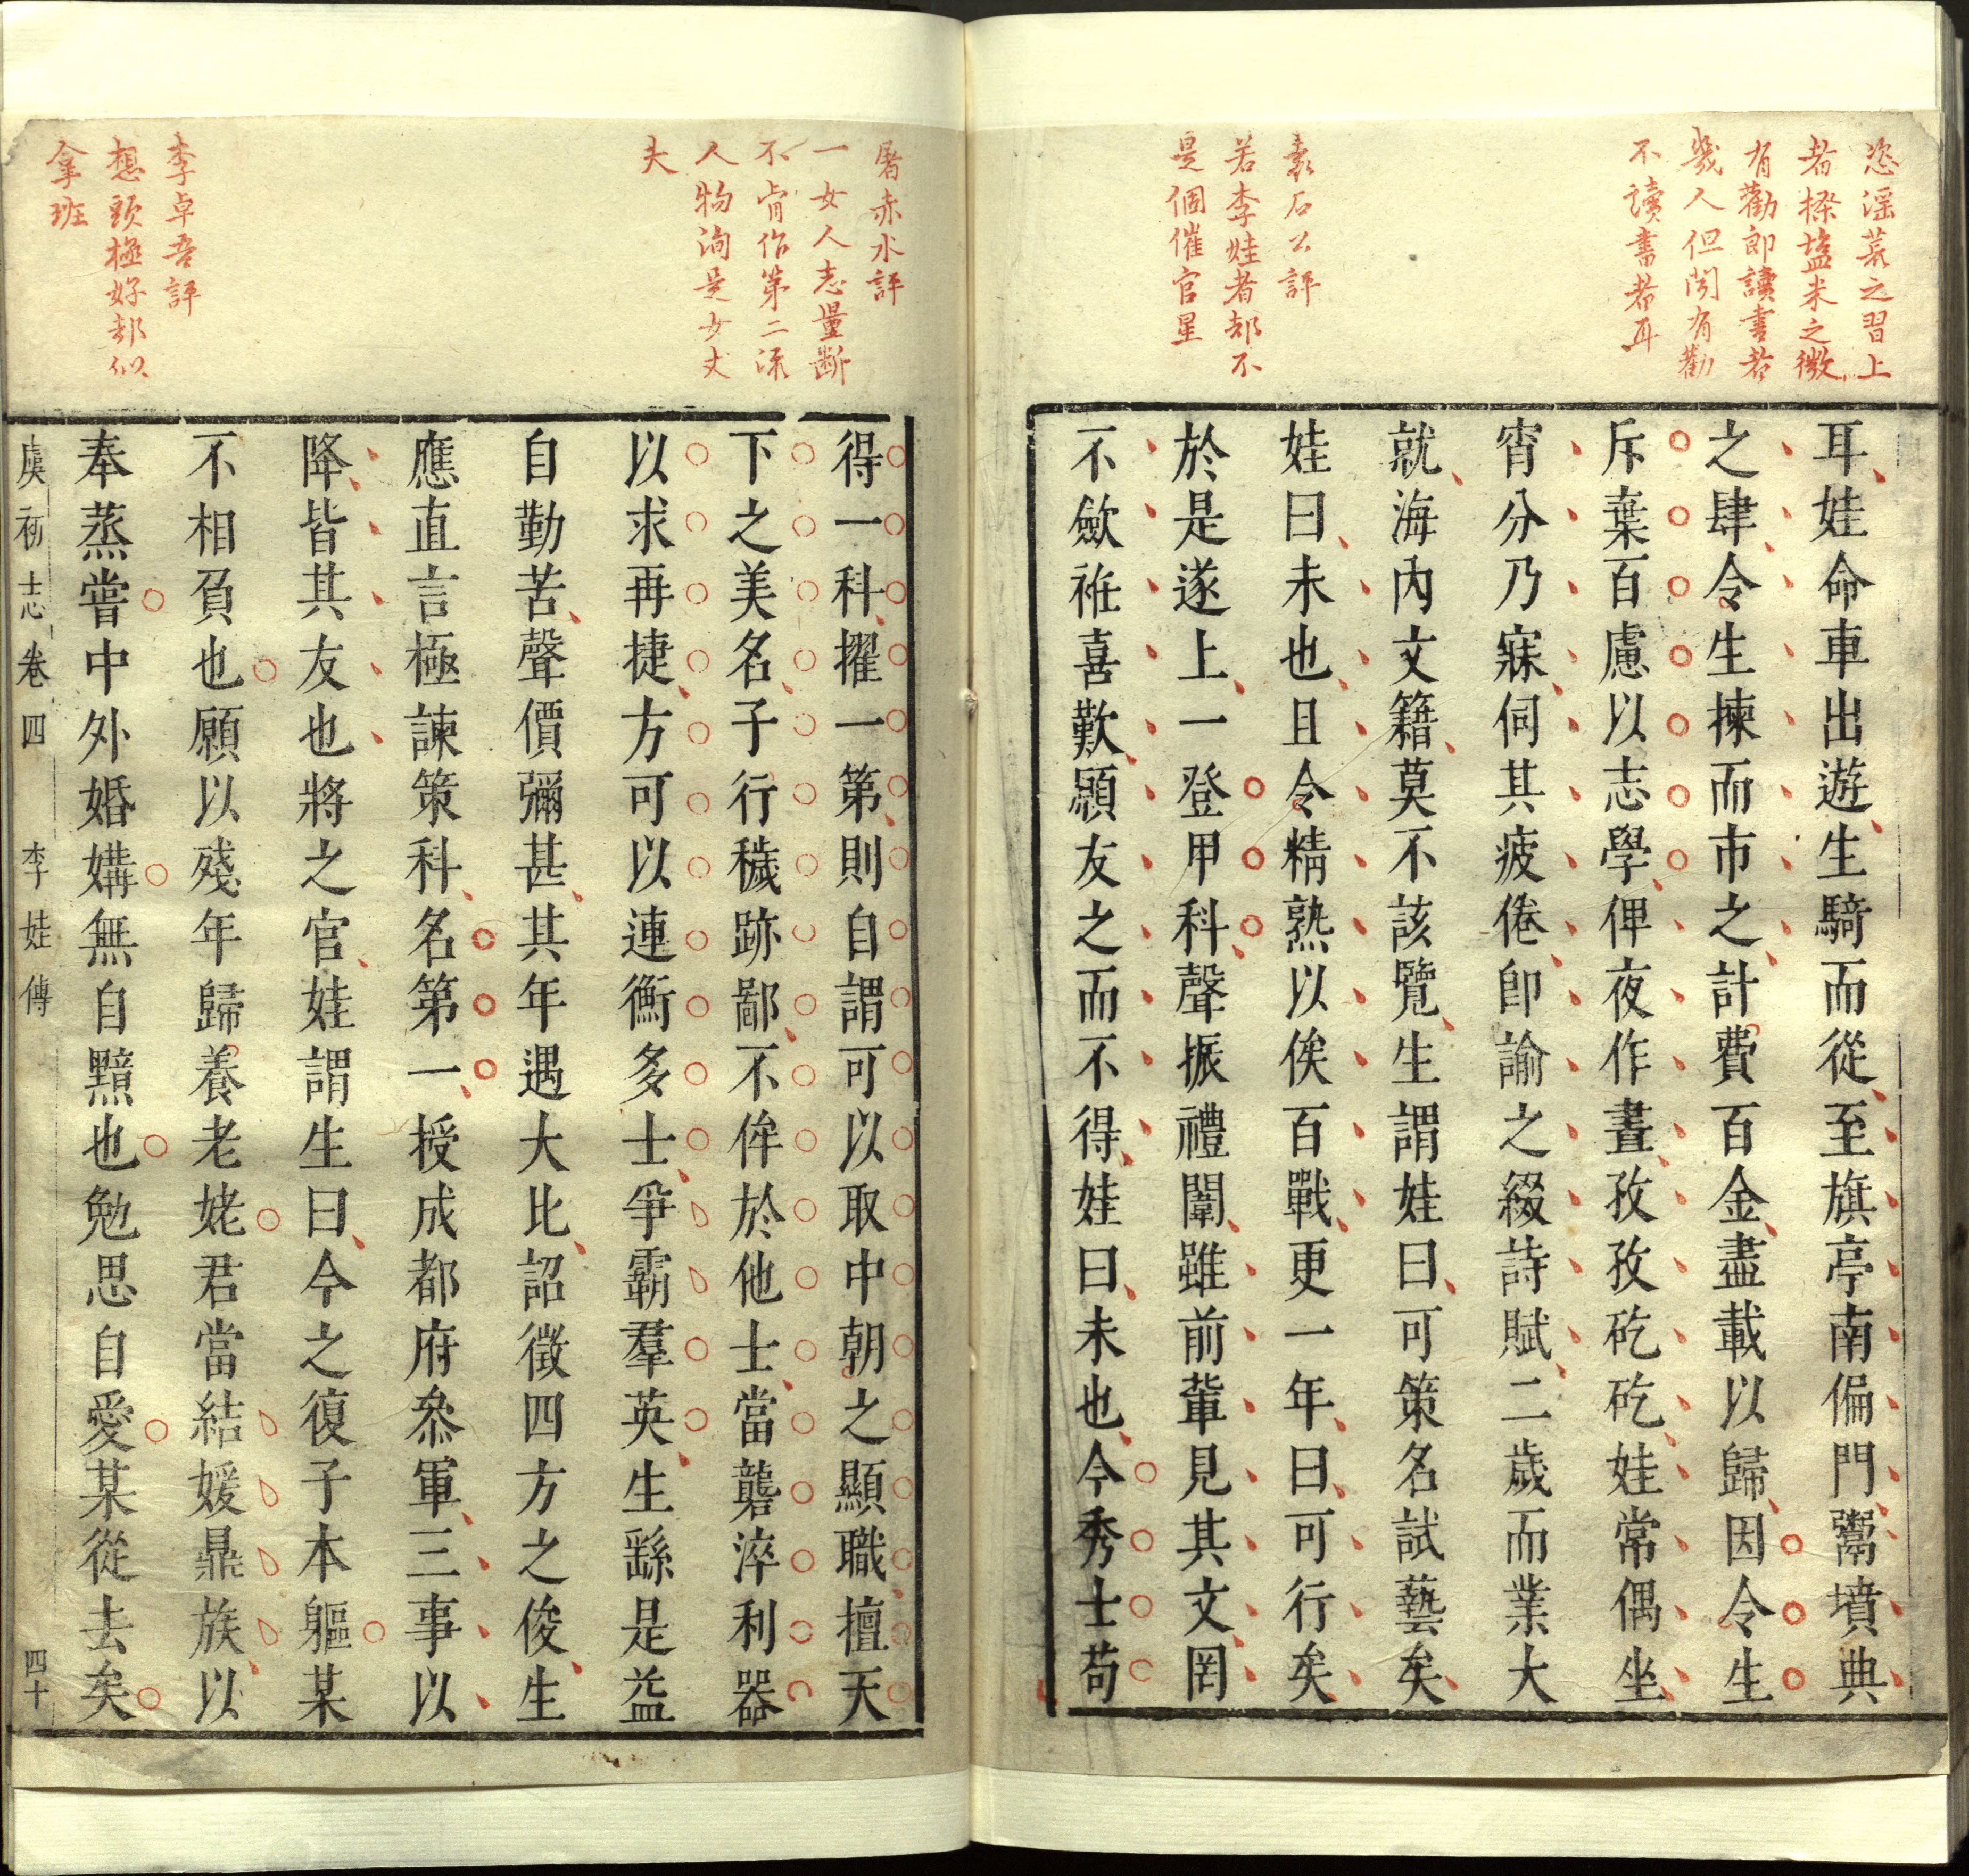 恣淫慕之習上
者操鹽米之微
有勸即讀書者
幾人但問有勸
不讀書者耳
袁石公評
若李娃者却不
是個催官星
耳娃命車出遊生騎而從至旗亭南偏門鬻墳典
之肆令生揀而市之計費百金盡載以歸因令生
斥棄百慮以志學俾夜作晝孜孜矻矻娃常偶坐
宵分乃寐伺其疲倦即諭之綴詩賦二歲而業大
就海內文籍莫不該覽生謂娃曰可策名試藝矣
娃曰未也且令精熟以俟百戰更一年曰可行矣
於是遂上一登甲科聲振禮闈雖前輩見其文罔
不歛袵喜歎願友之而不得娃曰未也今秀士苟
屠赤水評
一女人志量斷
不肯作第二流
人物洵是女丈
夫
李卓吾評
想頭極好却似
拿班
得一科擢一第則自謂可以取中朝之顯職擅天
下之美名子行穢跡鄙不侔於他士當礱淬利器
以求再捷方可以連衡多士爭霸羣英生繇是益
自勤苦聲價彌甚其年遇大比詔徵四方之俊生
應直言極諫策科名第一授成都府叅軍三事以
降皆其友也將之官娃謂生曰今之復子本軀某
不相負也願以殘年歸養老姥君當結媛鼎族以
奉蒸嘗中外婚媾無自黷也勉思自愛某從去矣
虞初志卷四 李娃傳 四十